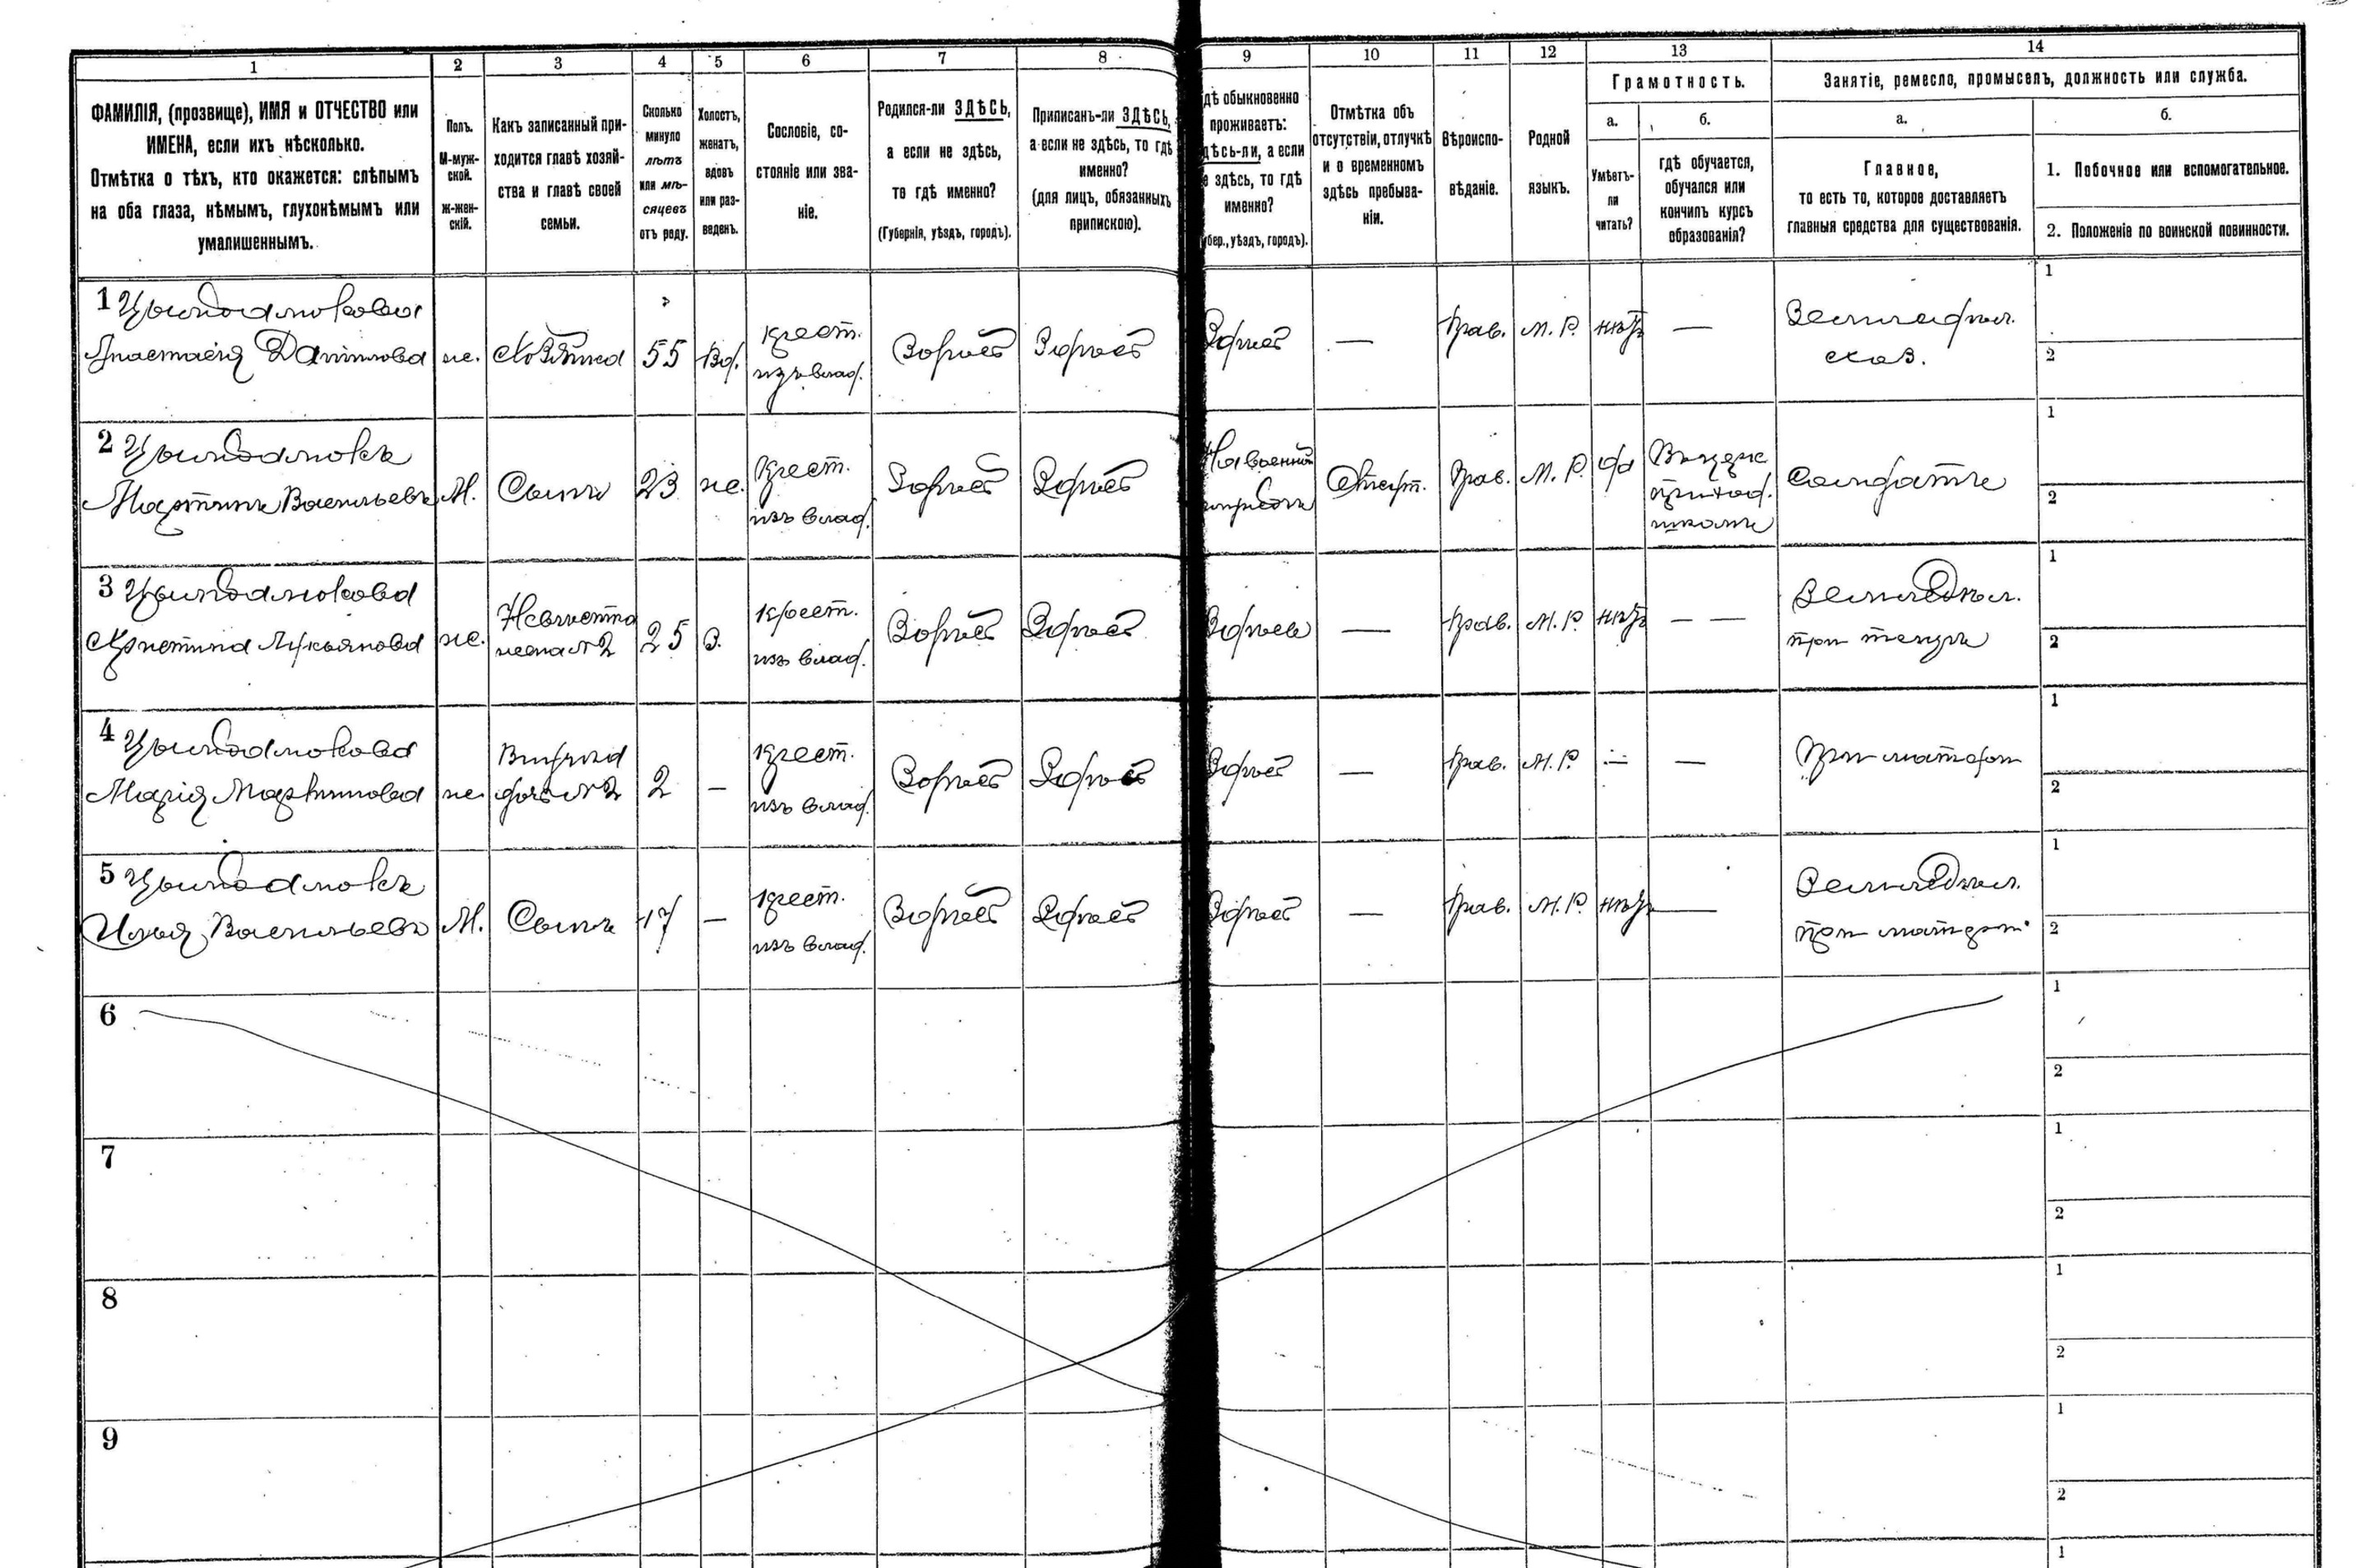 1
2
3
4
5
6
7
8
9
10
11
12
13
14
ФАМИЛІЯ, (прозвище), ИМЯ и ОТЧЕСТВО или
ИМЕНА, если ихъ нѣсколько.
Отмѣтка о тѣхъ, кто окажется: слѣпымъ
на оба глаза, нѣмымъ, глухонѣмымъ или
умалишеннымъ.
Полъ.
М-муж-
ской.
Ж-жен-
скій.
Какъ записанный при-
ходится главѣ хозяй-
ства и главѣ своей
семьи.
Сколько
минуло
лѣтъ
или мѣ-
сяцевъ
отъ роду.
Холостъ,
женатъ,
вдовъ
или раз-
веденъ.
Сословіе, со-
стояніе или зва-
ніе.
Родился-ли ЗДѢСЬ,
а если не здѣсь,
то гдѣ именно?
(Губернія, уѣздъ, городъ).
Приписанъ-ли ЗДѢСЬ,
а если не здѣсь, то гдѣ
именно?
(для лицъ, обязанныхъ
припискою).
дѣ обыкновенно
проживаетъ:
дѣсь-ли, а если
е здѣсь, то гдѣ
именно?
убер., уѣздъ, городъ).
Отмѣтка объ
отсутствіи, отлучкѣ
и о временномъ
здѣсь пребыва-
ніи.
Вѣроиспо-
вѣданіе.
Родной
языкъ.
Грамотность.
а.
Умѣетъ-
ли
читать?
б.
гдѣ обучается,
обучался или
кончилъ курсъ
образованія?
Занятіе, ремесло, промыселъ, должность или служба.
а.
Главное,
то есть то, которое доставляетъ
главныя средства для существованія.
б.
1. Побочное или вспомогательное.
2. Положеніе по воинской повинности.
1
Анастасія Данилова
ж.
Хозяйка
55
Вд.
крест.
изъ влад.
Здѣсь
Здѣсь
Здѣсь
—
Прав.
М. Р.
нѣтъ
—
Земледѣл.
хоз.
1
2
2
Мартинъ Васильевъ
М.
Сынъ
23
же.
Крест.
изъ влад.
Здѣсь
Здѣсь
На военной
Прав.
М. Р.
да
приход.
школѣ
Солдатъ
1
2
3
Христина Лукьянова
ж.
Невѣстка
жена №2
25
З.
крест.
изъ влад.
Здѣсь
Здѣсь
Здѣсь
—
Прав.
М. Р.
нѣтъ
— —
Земледѣл.
при
1
2
4
Марія Мартинова
ж.
Внучка
дочь №2
2
—
крест.
изъ влад.
Здѣсь
Здѣсь
Здѣсь
—
Прав.
М. Р.
—
—
При матери
1
2
5
Илья Васильевъ
М.
Сынъ
17
—
крест.
изъ влад.
Здѣсь
Здѣсь
Здѣсь
—
Прав.
М. Р.
нѣтъ
—
Земледѣл.
при матери
1
2
6
1
2
7
1
2
8
1
2
9
1
2
1